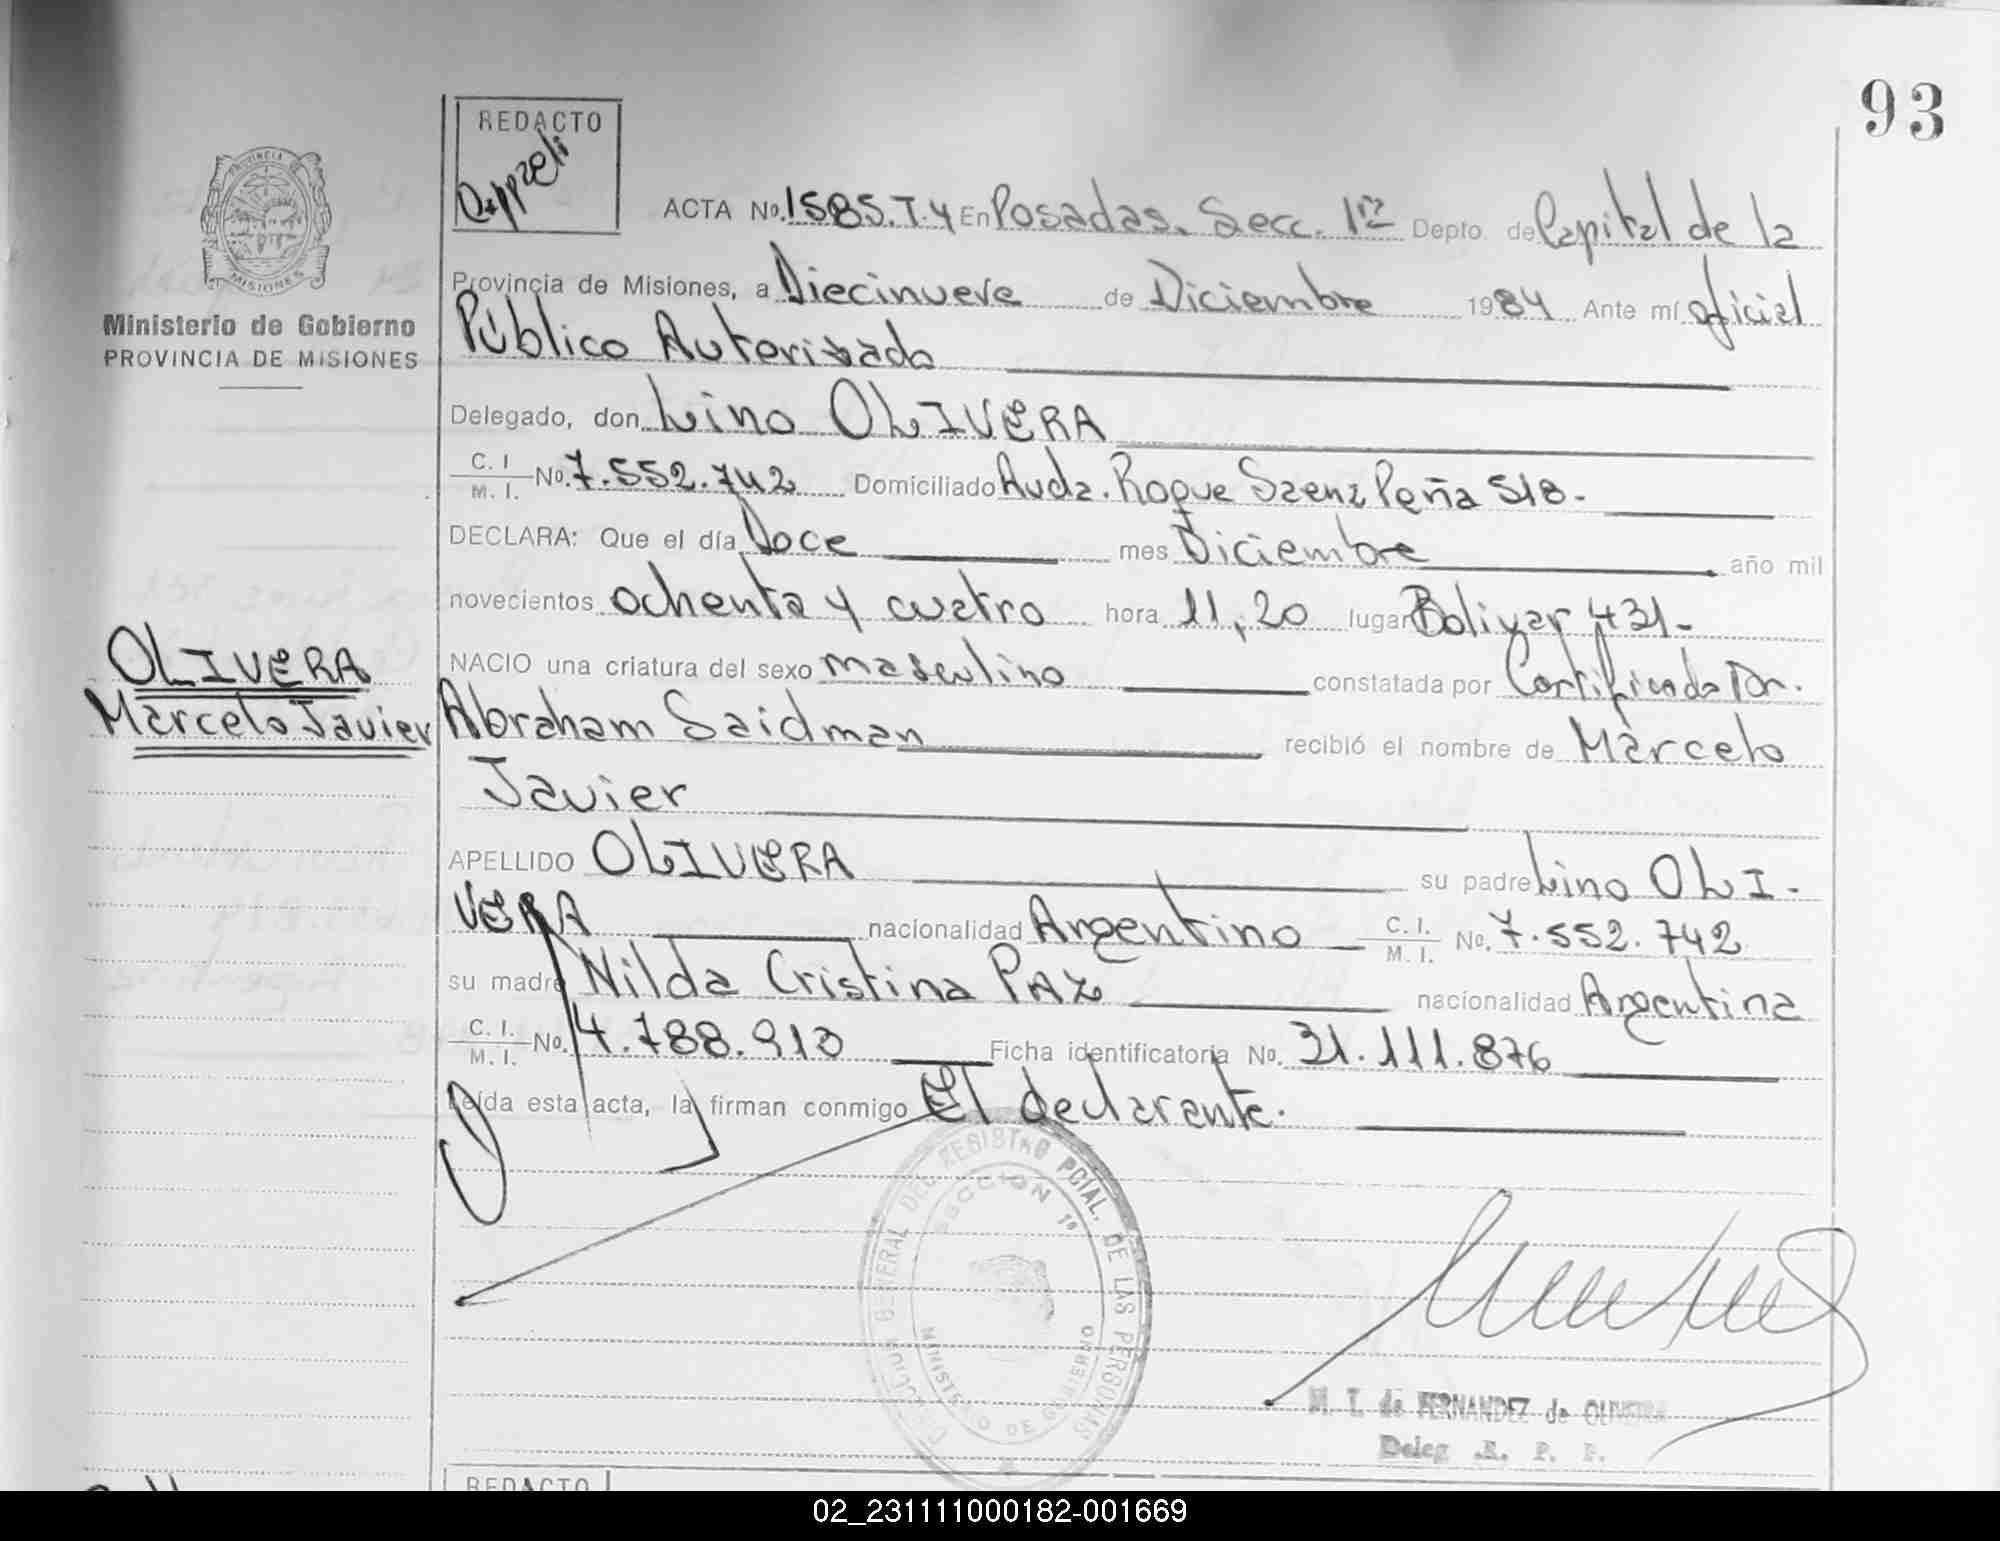 93
REDACTO
ACTA No. 1585.T.4 En Posadas. Secc. 1ra Depto. de Capital de la
PROVINCIA DE
MISIONES
Ministerio de Gobierno
PROVINCIA DE MISIONES
Provincia de Misiones, a Diecinueve de Diciembre 1984 Ante mí oficial
Público Autorizado
Delegado, don Lino OLIVERA
C. I. M. I. No. 7.552.742 Domiciliado Avda. Roque Saenz Peña 518-
DECLARA: Que el día Doce mes Diciembre año mil
novecientos ochenta y cuatro hora 11,20 lugar Bolivar 431-
OLIVERA
Marcelo Javier
NACIO una criatura del sexo masculino constatada por Certificado Dr.
Abraham Saidman recibió el nombre de Marcelo
Javier
APELLIDO OLIVERA su padre Lino OLI-
VERA nacionalidad Argentino C. I. M. I. No. 7.552.742
su madre Nilda Cristina PAZ nacionalidad Argentina
C. I. M. I. No. 4.788.913 Ficha identificatoria No. 31.111.876
Leída esta acta, la firman conmigo El declarante.
GENERAL DEL REGISTRO PCIAL. DE LAS PERSONAS
SECCION 1ª
MINISTERIO DE GOBIERNO
M. T. de FERNANDEZ de OLIVEIRA
Deleg. R. P. P.
REDACTO
02_231111000182-001669